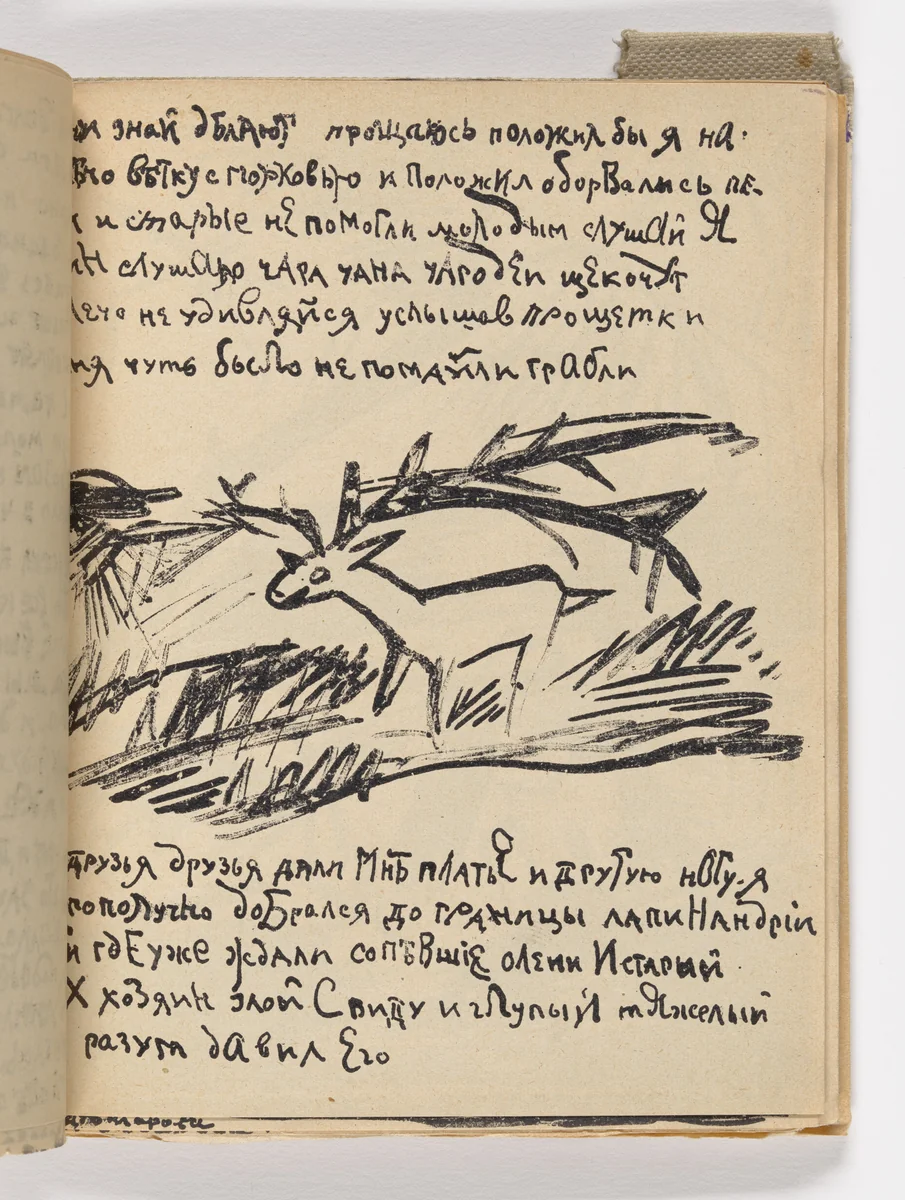 знай дѣлают прощаюсь положил бы я на
вѣтку с морковью и положил оборвались пе
и старые не помогли молодым слушай я
слушаю чара чана чародеи щекочут
лечо не удивляйся услышав про щетки
ня чуть было не помяли грабли
друзья друзья дали мнѣ платье и другую ногу. я
гополучно добрался до границы лапиландріи
й где уже ждали сопѣвшіе олени и старый
х хозяин злой с виду и глупый тяжелый
разум давил его